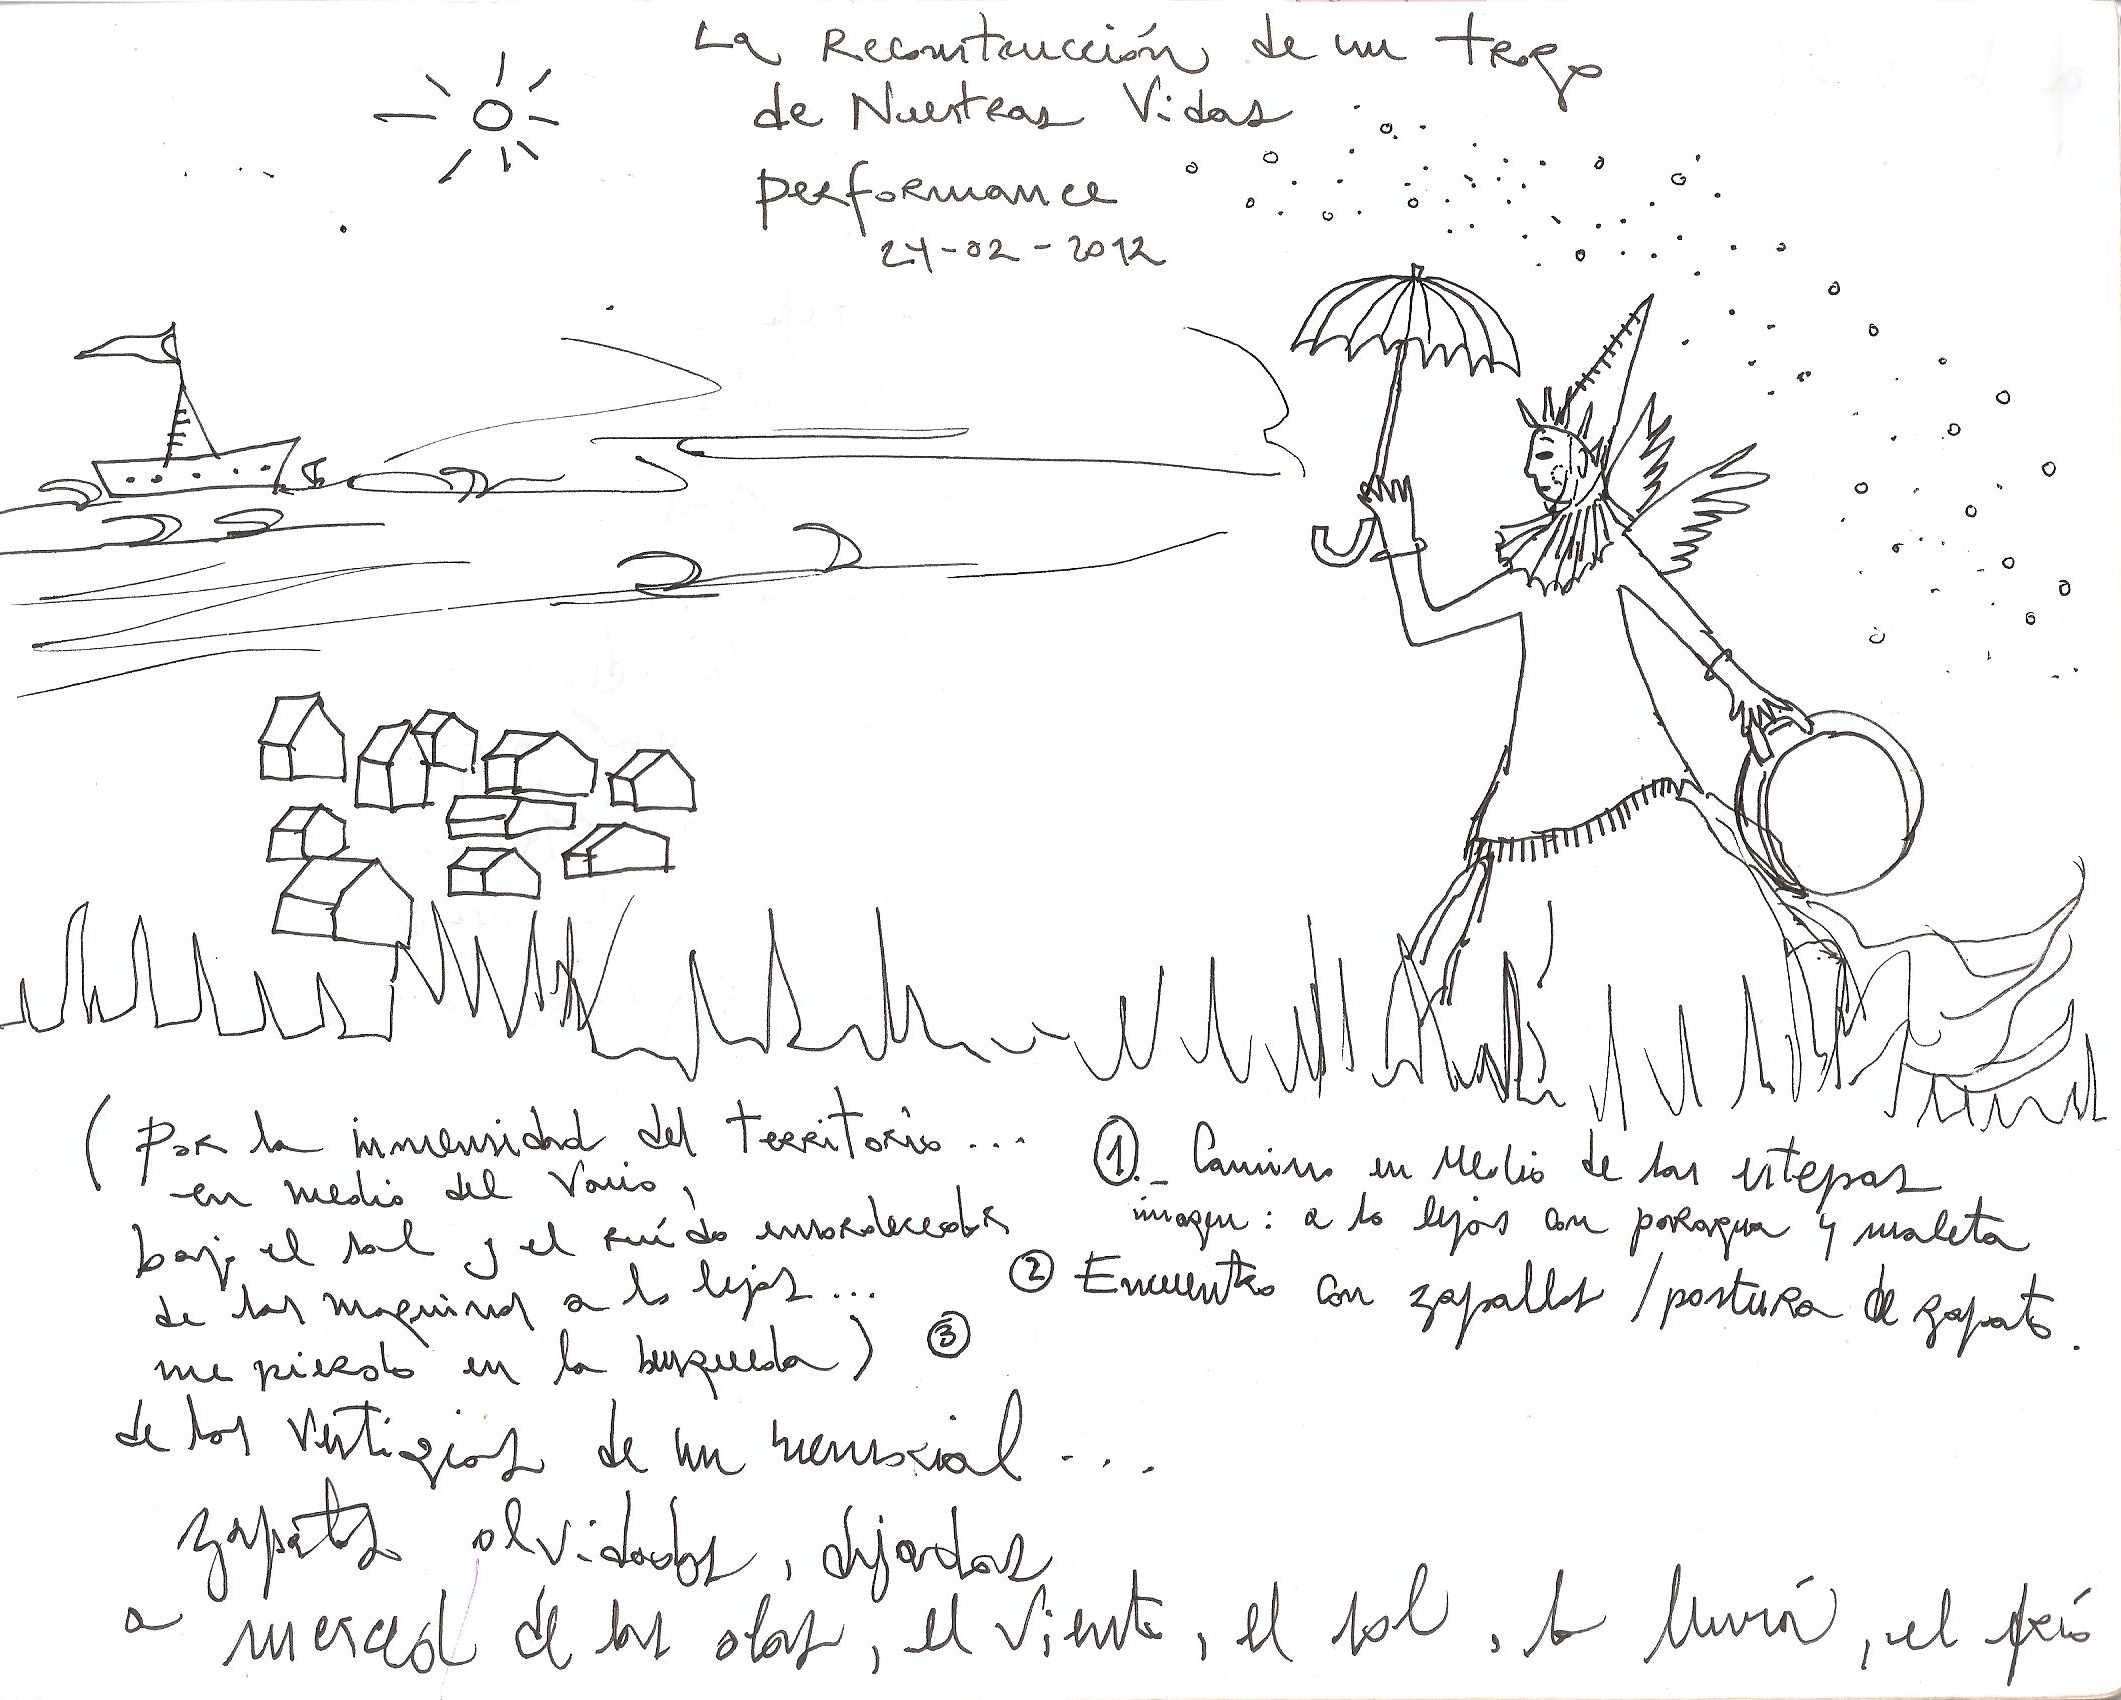 La Reconstrucción de un trozo
de Nuestras Vidas
performance
24-02-2012
(Por la inmensidad del territorio...
en medio del vacio,
bajo el sol y el ruído ensordecedor
de las maquinas a lo lejos...
me pierdo en la busqueda) ③
de los vestigios de un memorial...
zapatos olvidados, dejados
a merced de las olas, el viento, el sol, la lluvia, el frío
①.- Camino en medio de las estepas
imagen: a lo lejos con paragua y maleta
② Encuentro con zapallos / postura de zapato.